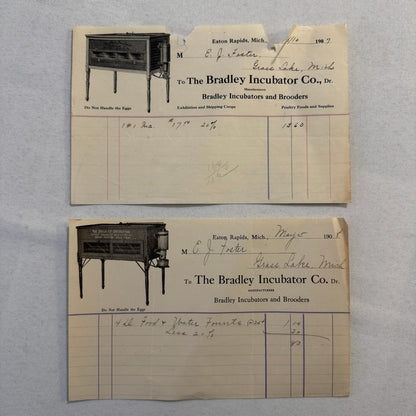 Eaton Rapids, Mich. 1907
M E. J. Foster,
Grass Lake, Mich
To The Bradley Incubator Co., Dr.
Manufacturers
Bradley Incubators and Brooders
Do Not Handle the Eggs
Exhibition and Shipping Coops Poultry Foods and Supplies
1#1 Inc. $17.00 20% 13.60
Eaton Rapids, Mich., May 5 1908
M E. J. Foster
Grass Lake, Mich
To The Bradley Incubator Co. Dr.
MANUFACTURERS
Bradley Incubators and Brooders
Do Not Handle the Eggs
Food & Water Founts 1.00
Less 20% 20
80